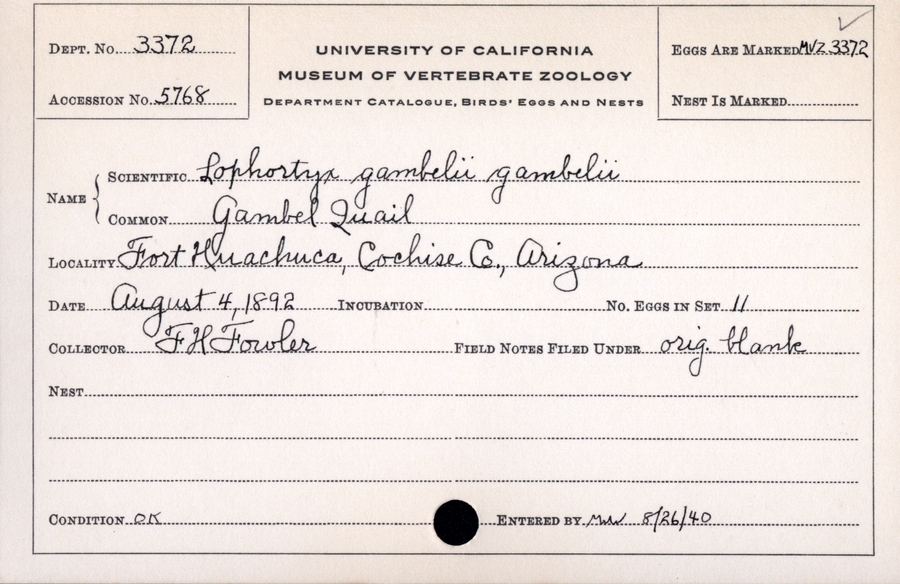 DEPT. NO. 3372
ACCESSION NO. 5768
UNIVERSITY OF CALIFORNIA
MUSEUM OF VERTEBRATE ZOOLOGY
DEPARTMENT CATALOGUE, BIRDS' EGGS AND NESTS
EGGS ARE MARKED MVZ 3372
NEST IS MARKED
NAME
SCIENTIFIC Lophortyx gambelii gambelii
COMMON Gambel Quail
LOCALITY Fort Huachuca, Cochise Co., Arizona
DATE August 4, 1892 INCUBATION NO. EGGS IN SET 11
COLLECTOR F H Fowler FIELD NOTES FILED UNDER orig. blank
NEST
CONDITION OK ENTERED BY 8/26/40